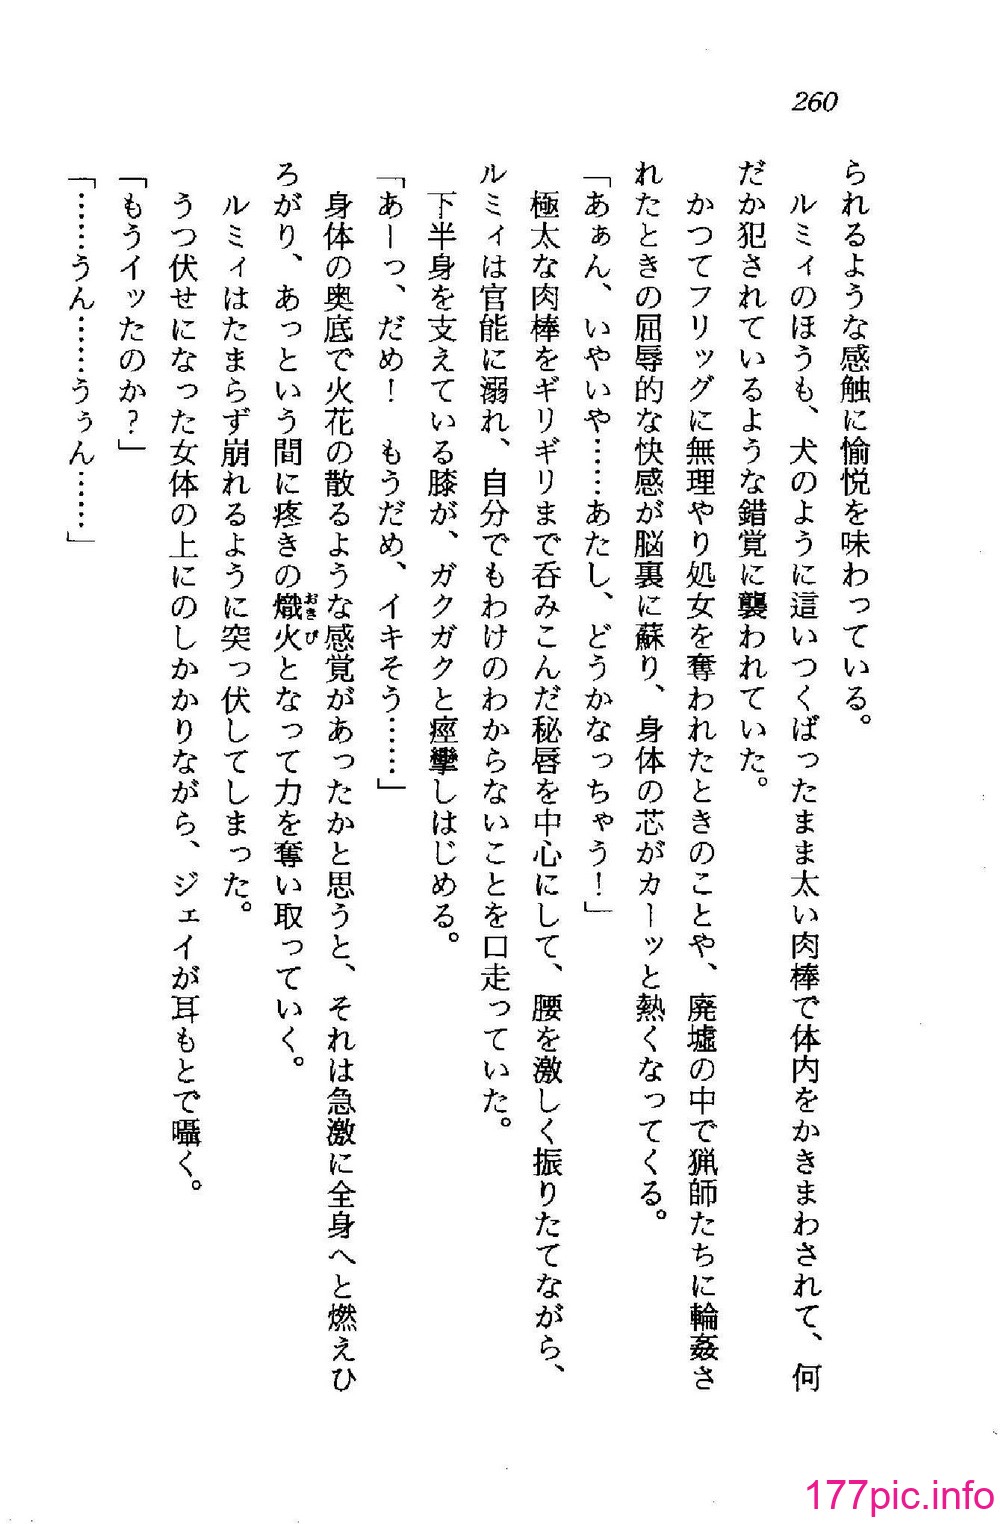 260
られるような感触に愉悦を味わっている。
ルミィのほうも、犬のように這いつくばったまま太い肉棒で体内をかきまわされて、何
だか犯されているような錯覚に襲われていた。
かつてフリッグに無理やり処女を奪われたときのことや、廃墟の中で猟師たちに輪姦さ
れたときの屈辱的な快感が脳裏に蘇り、身体の芯がカーッと熱くなってくる。
「あぁん、いやいや……あたし、どうかなっちゃう！」
極太な肉棒をギリギリまで呑みこんだ秘唇を中心にして、腰を激しく振りたてながら、
ルミィは官能に溺れ、自分でもわけのわからないことを口走っていた。
下半身を支えている膝が、ガクガクと痙攣しはじめる。
「あーっ、だめ！　もうだめ、イキそう……」
身体の奥底で火花の散るような感覚があったかと思うと、それは急激に全身へと燃えひ
ろがり、あっという間に疼きの熾火おきびとなって力を奪い取っていく。
ルミィはたまらず崩れるように突っ伏してしまった。
うつ伏せになった女体の上にのしかかりながら、ジェイが耳もとで囁く。
「もうイッたのか？」
「……うん……うぅん……」
177pic.info